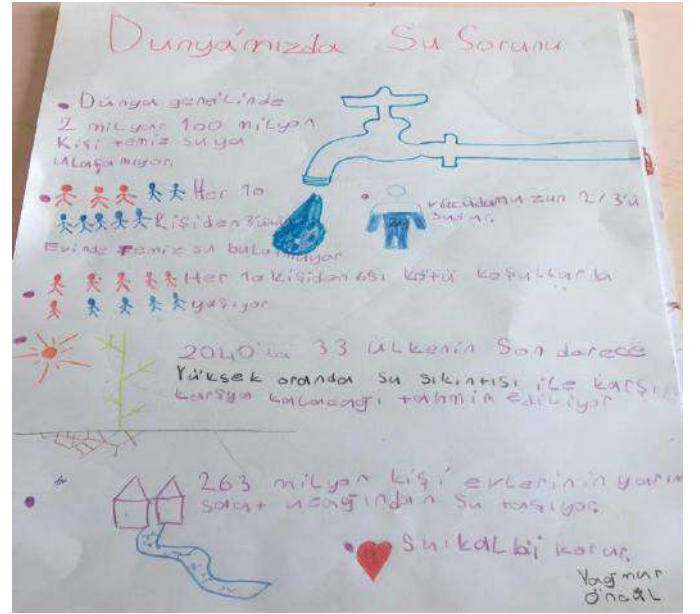 Dünya'mızda Su Sorunu
Dünya genelinde
2 milyar 100 milyon
Kişi temiz suya
ulaşamıyor.
Her 10
Kişiden 3'ünün
Evinde temiz su bulunmuyor
vücudumuzun 2/3'ü
sudur.
Her 10 kişiden 6sı kötü koşullarda
yaşıyor
2040'ta 33 ülkenin Son derece
Yüksek oranda su sıkıntısı ile karşı
karşıya kalacağı tahmin ediliyor
263 milyon kişi evlerinin yarım
saat uzağından su taşıyor.
Su: kalbi korur.
Yağmur